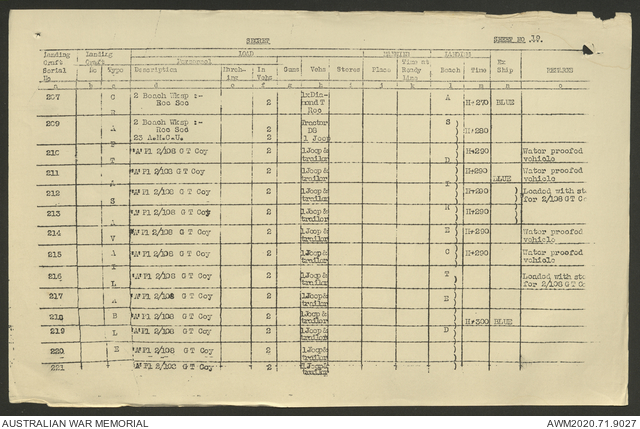 SECRET
SHEET NO 19.
Landing Craft Serial No | Landing Craft | LOAD | MARRIED | LANDING | Ex Ship | REMARKS
No | Type | Personnel | Guns | Vehs | Stores | Place | Time at Ready Line | Beach | Time
Description | March-ing | In Vehs
a b c d e f g h i j k l m n o
207 C 2 Beach Wksp :- Rec Sec 2 1xDia-mond T Rec A H+270 BLUE
209 R 2 Beach Wksp :- Rec Sec 2 Tractor D8 S H+280
A 23 A.M.C.U. 2 1 Jeep
210 "A" Pl 2/108 G T Coy 2 1 Jeep & trailer D H+290 Water proofed vehicle
211 "A" Pl 2/108 G T Coy 2 1 Jeep & trailer H+290 BLUE Water proofed vehicle
212 A "A" Pl 2/108 G T Coy 2 1 Jeep & trailer H+290 Loaded with sto for 2/108 G T Co
213 S "A" Pl 2/108 G T Coy 2 1 Jeep & trailer H+290
214 "A" Pl 2/108 G T Coy 2 1 Jeep & trailer E H+290 Water proofed vehicle
215 A "A" Pl 2/108 G T Coy 2 1 Jeep & trailer C H+290 Water proofed vehicle
216 I L "A" Pl 2/108 G T Coy 2 1 Jeep & trailer T Loaded with sto for 2/108 G T Co
217 A "A" Pl 2/108 G T Coy 2 1 Jeep & trailer E
218 B "A" Pl 2/108 G T Coy 2 1 Jeep & trailer H+300 BLUE
219 L "A" Pl 2/108 G T Coy 2 1 Jeep & trailer D
220 E "A" Pl 2/108 G T Coy 2 1 Jeep & trailer
221 "A" Pl 2/108 G T Coy 2 1 Jeep & trailer
AUSTRALIAN WAR MEMORIAL
AWM2020.71.9027